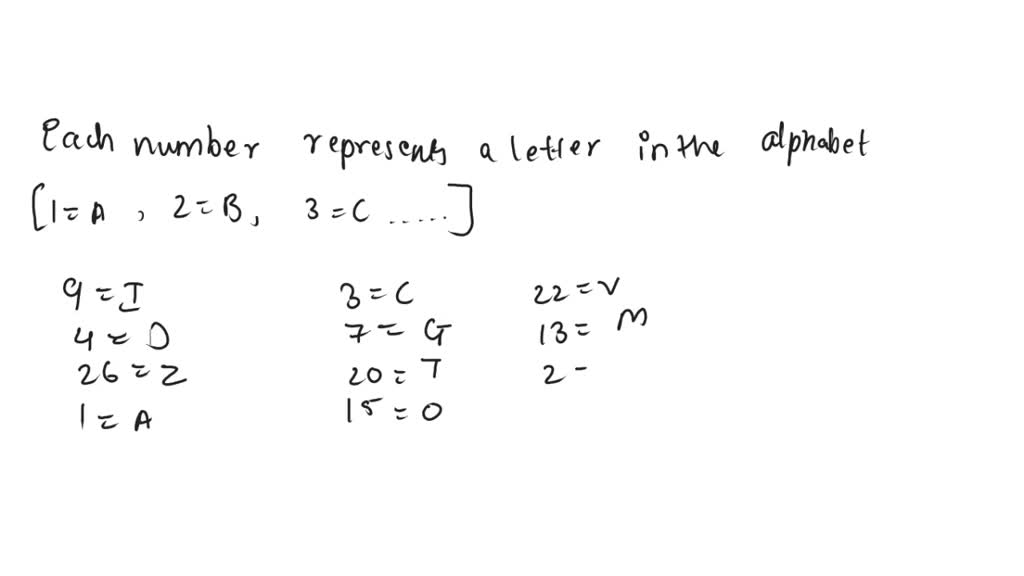 Each number represents a letter in the alphabet
[1=A , 2=B, 3=C .....]
9=I
4=D
26=Z
1=A
3=C
7=G
20=T
15=O
22=V
13=M
2-